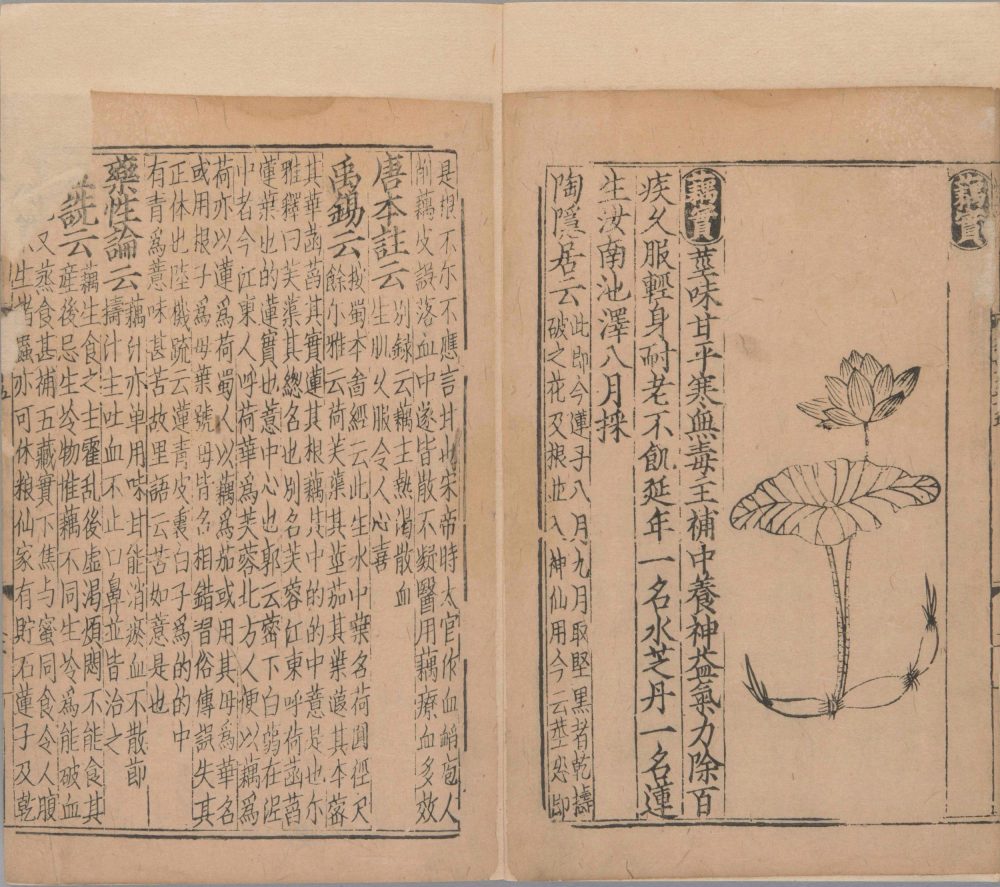 藕實
藕實莖味甘平寒無毒主補中養神益氣力除百
疾久服輕身耐老不飢延年一名水芝丹一名蓮
生汝南池澤八月採
陶隱居云此即今蓮子八月九月取堅黑者乾擣
破之花及根並入神仙用今云莖恐即
是根不尔不應言甘也宋帝時太官作血䘓庖人
削藕皮誤落血中遂皆散不凝醫用藕療血多效
唐本註云別録云藕主熱渴散血
生肌久服令人心喜
禹錫云按蜀本啚經云此生水中葉名荷圓徑尺
餘尔雅云荷芙蕖其莖茄其葉蕸其本蔤
其華菡萏其實蓮其根藕其中的的中薏是也尔
雅釋曰芙蕖其緫名也別名芙蓉江東呼荷菡萏
蓮華也的蓮實也薏中心也郭云蔤下白蒻在泥
中者今江東人呼荷華爲芙蓉北方人便以藕爲
荷亦以蓮爲荷蜀人以藕爲茄或用其母爲華名
或用根子爲母葉號母皆名相錯習俗傳誤失其
正体也陸機疏云蓮青皮裏白子爲的的中
有青爲薏味甚苦故里語云苦如薏是也
藥性論云藕汁亦单用味甘能消瘀血不散節
擣汁主吐血不止口鼻並皆治之
詵云藕生食之主霍乱後虛渴煩悶不能食其
產後忌生冷物惟藕不同生冷爲能破血
又蒸食甚補五藏實下焦与蜜同食令人腹
生諸蟲亦可休粮仙家有貯石蓮子及乾